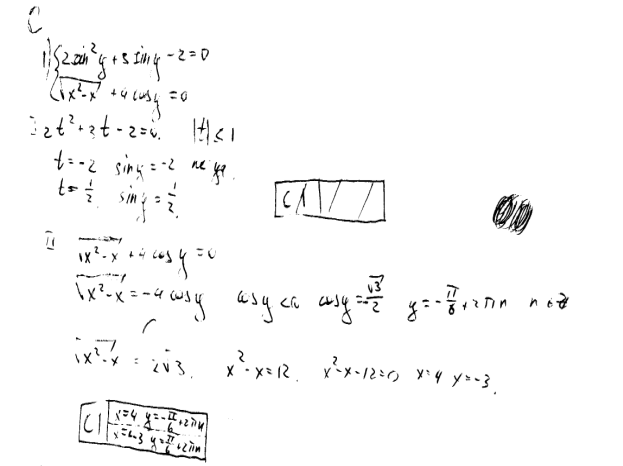 C
1) { 2 sin² y + 3 sin y - 2 = 0
√x²-x + 4 cos y = 0
I 2t² + 3t - 2 = 0. |t| ≤ 1
t = -2 sin y = -2
t = 1/2. sin y = 1/2.
C 1
II √x²-x + 4 cos y = 0
√x²-x = -4 cos y cos y < 0 cos y = -√3/2 y = -π/6 + 2πn n ∈ Z
√x²-x = 2√3. x²-x = 12. x²-x-12=0 x=4 x=-3.
C1 x=4 y=-π/6+2πn
x=-3 y=π/6+2πn